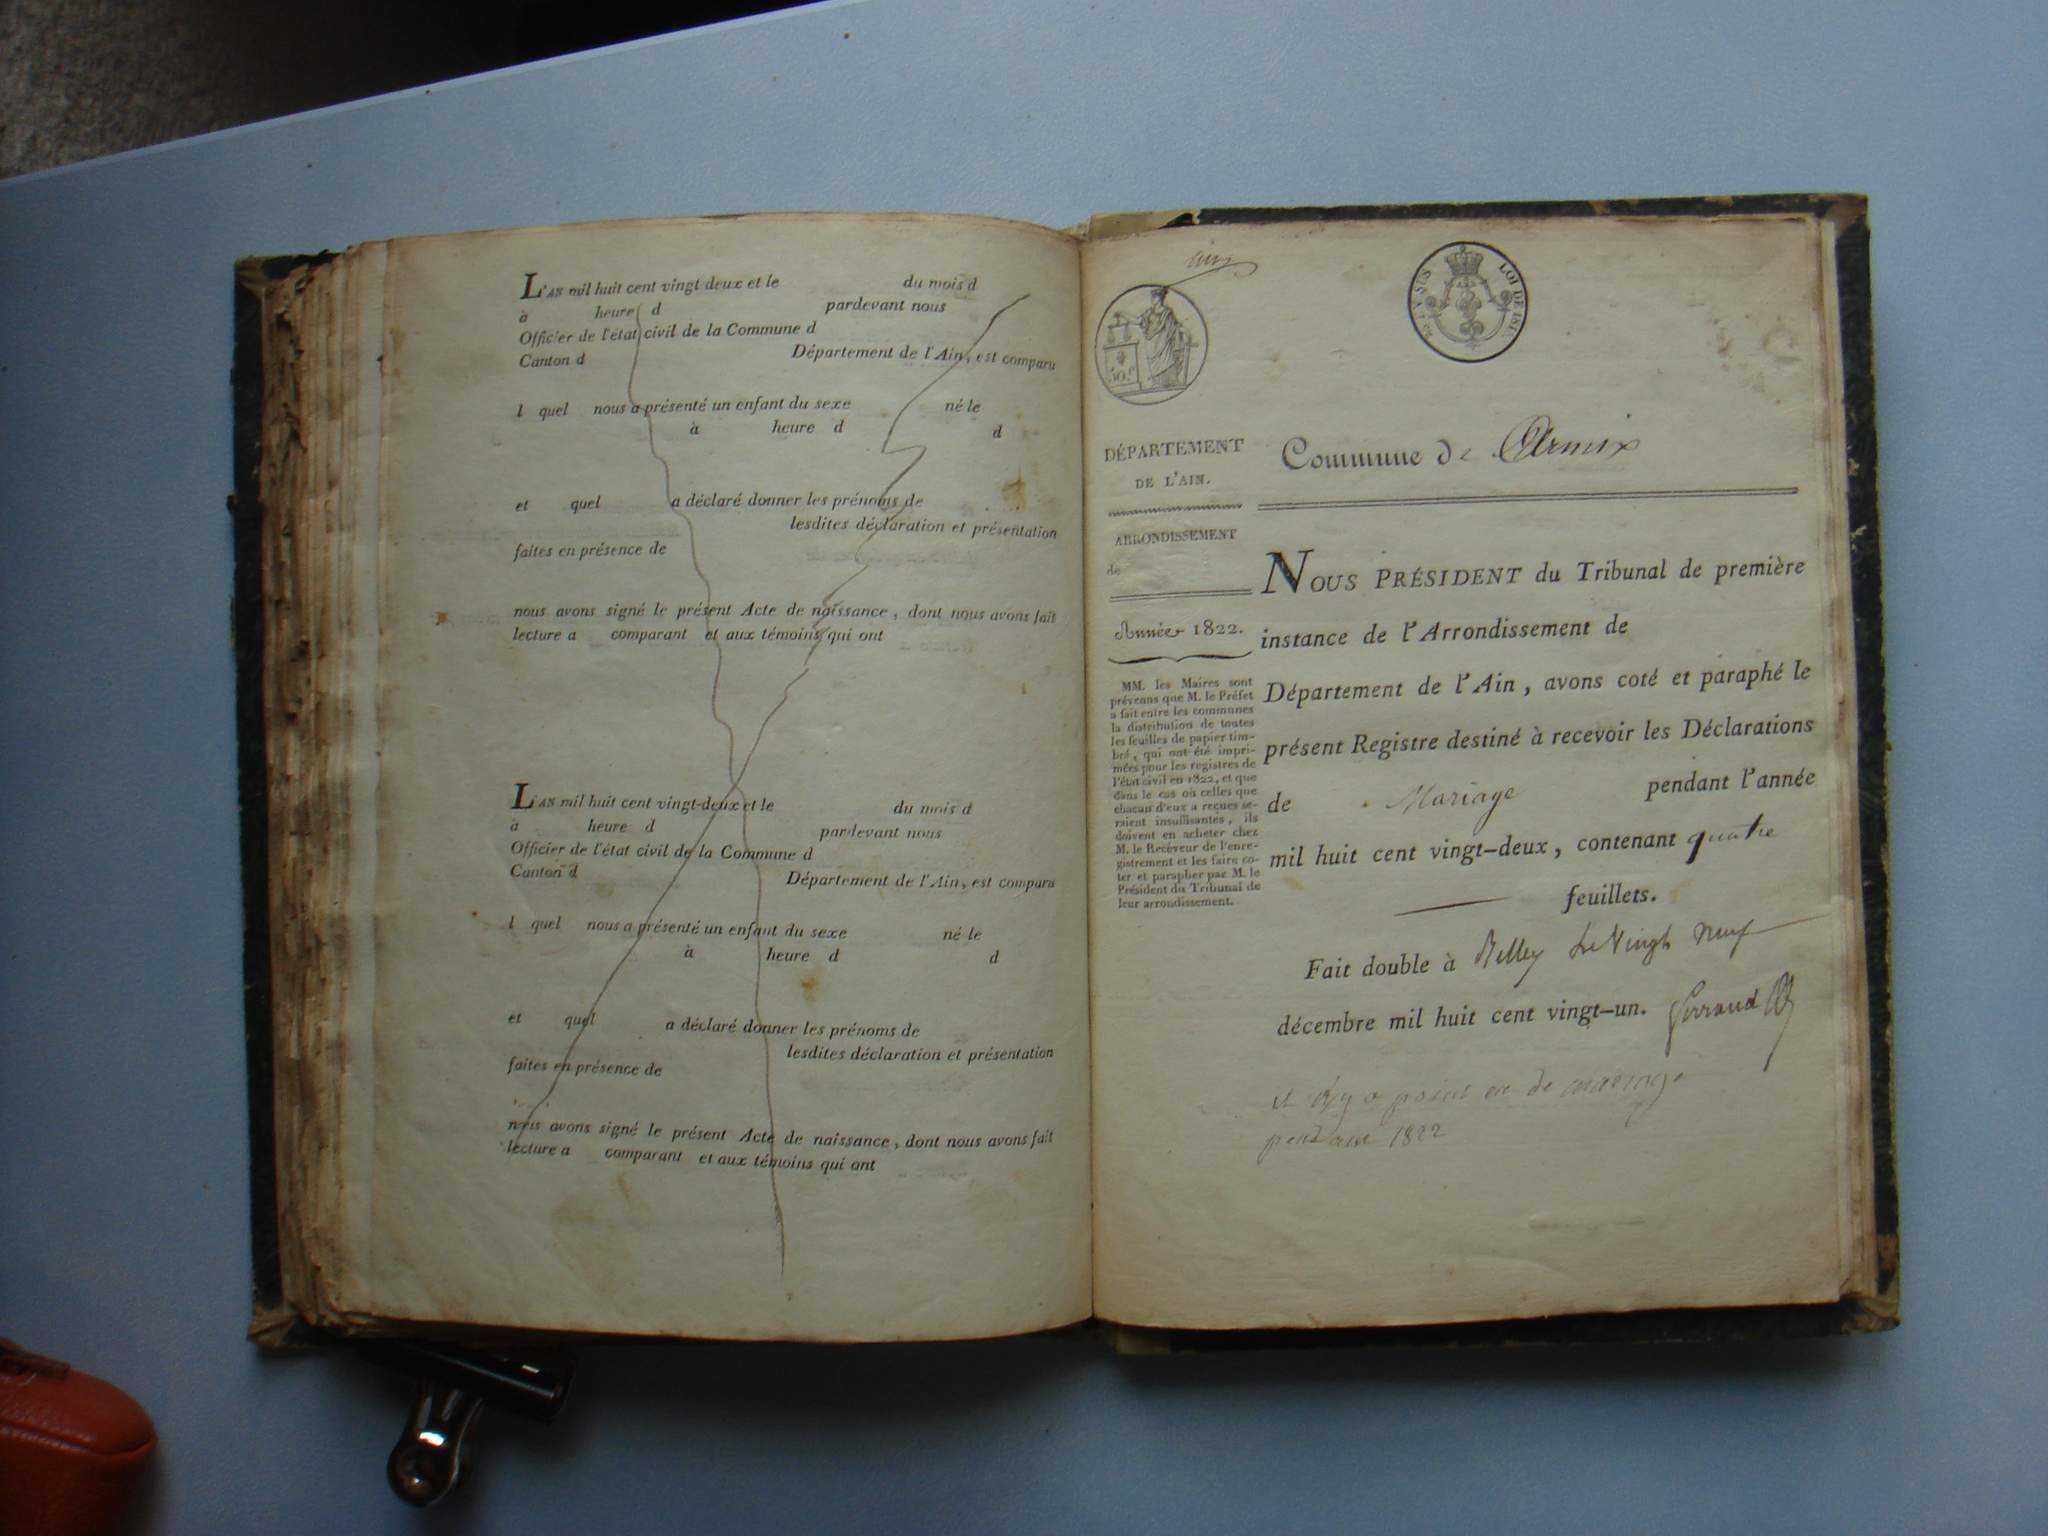 L'AN mil huit cent vingt deux et le du mois d
à heure d pardevant nous
Officier de l'état civil de la Commune d
Canton d Département de l'Ain, est comparu
l quel nous a présenté un enfant du sexe né le
à heure d d
et quel a déclaré donner les prénoms de
lesdites déclaration et présentation
faites en présence de
nous avons signé le présent Acte de naissance, dont nous avons fait
lecture a comparant et aux témoins qui ont
L'AN mil huit cent vingt-deux et le du mois d
à heure d pardevant nous
Officier de l'état civil de la Commune d
Canton d Département de l'Ain, est comparu
l quel nous a présenté un enfant du sexe né le
à heure d d
et quel a déclaré donner les prénoms de
lesdites déclaration et présentation
faites en présence de
nous avons signé le présent Acte de naissance, dont nous avons fait
lecture a comparant et aux témoins qui ont
50 c
LOI DE
DÉPARTEMENT
DE L'AIN.
ARRONDISSEMENT
de
Année 1822.
MM. les Maires sont
prévenus que M. le Préfet
a fait entre les communes
la distribution de toutes
les feuilles de papier tim-
bré, qui ont été impri-
mées pour les registres de
l'état civil en 1822, et que
dans le cas où celles que
chacun d'eux a reçues se-
raient insuffisantes, ils
doivent en acheter chez
M. le Receveur de l'enre-
gistrement et les faire co-
ter et parapher par M. le
Président du Tribunal de
leur arrondissement.
Commune de Armix
NOUS PRÉSIDENT du Tribunal de première
instance de l'Arrondissement de
Département de l'Ain, avons coté et paraphé le
présent Registre destiné à recevoir les Déclarations
de Mariage pendant l'année
mil huit cent vingt-deux, contenant quatre
feuillets.
Fait double à Belley le Vingt neuf
décembre mil huit cent vingt-un.
il n'y a point eu de mariage
pendant 1822